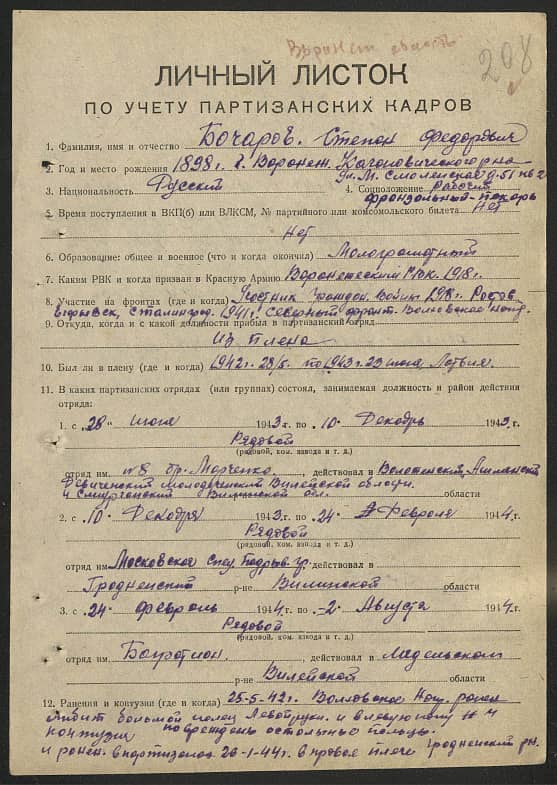 Воронеж область
208
ЛИЧНЫЙ ЛИСТОК
ПО УЧЕТУ ПАРТИЗАНСКИХ КАДРОВ
1. Фамилия, имя и отчество Бочаров. Степан Федорович
2. Год и место рождения 1898 г. г. Воронеж. Кагоновического р-на
ул. М. Смоленская д-51 кв 2
3. Национальность Русский 4. Соцположение Рабочий
франзольный-пекарь
5. Время поступления в ВКП(б) или ВЛКСМ, № партийного или комсомольского билета Нет
Нет
6. Образование: общее и военное (что и когда окончил) Малограмотный
7. Каким РВК и когда призван в Красную Армию Воронежский 1918 г.
8. Участие на фронтах (где и когда) Участник Граждан. войны 1918 г. Ростов
Сталинград. 1941 г. Северный фронт. Волховское напр.
9. Откуда, когда и с какой должности прибыл в партизанский отряд
Из плена
10. Был ли в плену (где и когда) 1942 г. 28/5. по 1943 г. 23 июня Латвия.
11. В каких партизанских отрядах (или группах) состоял, занимаемая должность и район действия
отряда:
1. с „28" июня 1943 г. по „10" Декабрь 1943 г.
Рядовой
(рядовой, ком. взвода и т. д.)
отряд им. №8 бр. Марченко, действовал в Воложенский, Ашмянский
Молодеченский Вилейской области
и Сморгонский Вилинской обл. области
2. с „10" Декабря 1943 г. по „24" Февраля 1944 г.
Рядовой
(рядовой, ком. взвода и т. д.)
отряд им Московское спец. Подрыв. гр. действовал в
Гродненский р-не Вилинской области
3. с „24" февраль 1944 г. по „2" Августа 1944 г.
Рядовой
(рядовой, ком. взвода и т. д.)
отряд им. Богратион. , действовал в Мядельском
р-не Вилейской области
12. Ранения и контузии (где и когда) 25-5-42 г. Волховское Нап. ранен
большой палец Левой руки. и в левую ногу и
контузия повреждены остальные пальцы.
и ранен. в партизанах 26-1-44 г. в правое плечо Гродненский рн.